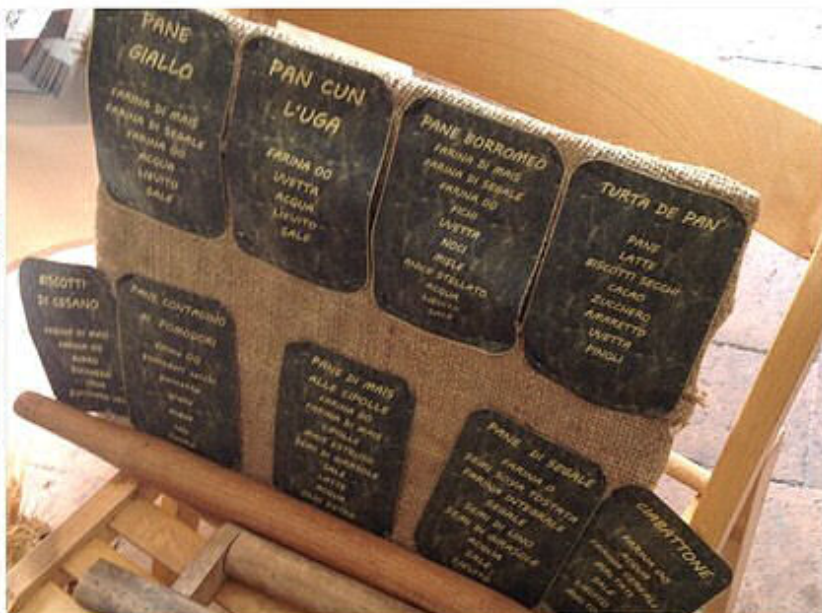 PANE
GIALLO
FARINA DI MAIS
FARINA DI SEGALE
FARINA 00
ACQUA
LIEVITO
SALE
PAN CUN
L'UGA
FARINA 00
UVETTA
ACQUA
LIEVITO
SALE
PANE BORROMEO
FARINA DI MAIS
FARINA DI SEGALE
FARINA 00
FICHI
UVETTA
NOCI
MIELE
ANICE STELLATO
ACQUA
LIEVITO
SALE
TURTA DE PAN
PANE
LATTE
BISCOTTI SECCHI
CACAO
ZUCCHERO
AMARETTO
UVETTA
PINOLI
BISCOTTI
DI CESANO
FARINA DI MAIS
FARINA 00
BURRO
PANE CONTADINO
AI POMODORI
FARINA 00
POMODORI SECCHI
PANE DI MAIS
ALLE CIPOLLE
FARINA 00
FARINA DI MAIS
CIPOLLE
MAIS
SEMI DI GIRASOLE
SALE
LATTE
ACQUA
PANE DI SEGALE
FARINA 0
SEMI SOIA TOSTATA
FARINA INTEGRALE
SEGALE
SEMI DI LINO
SEMI DI GIRASOLE
ACQUA
SALE
LIEVITO
CIABATTONE
FARINA 00
ACQUA
SALE